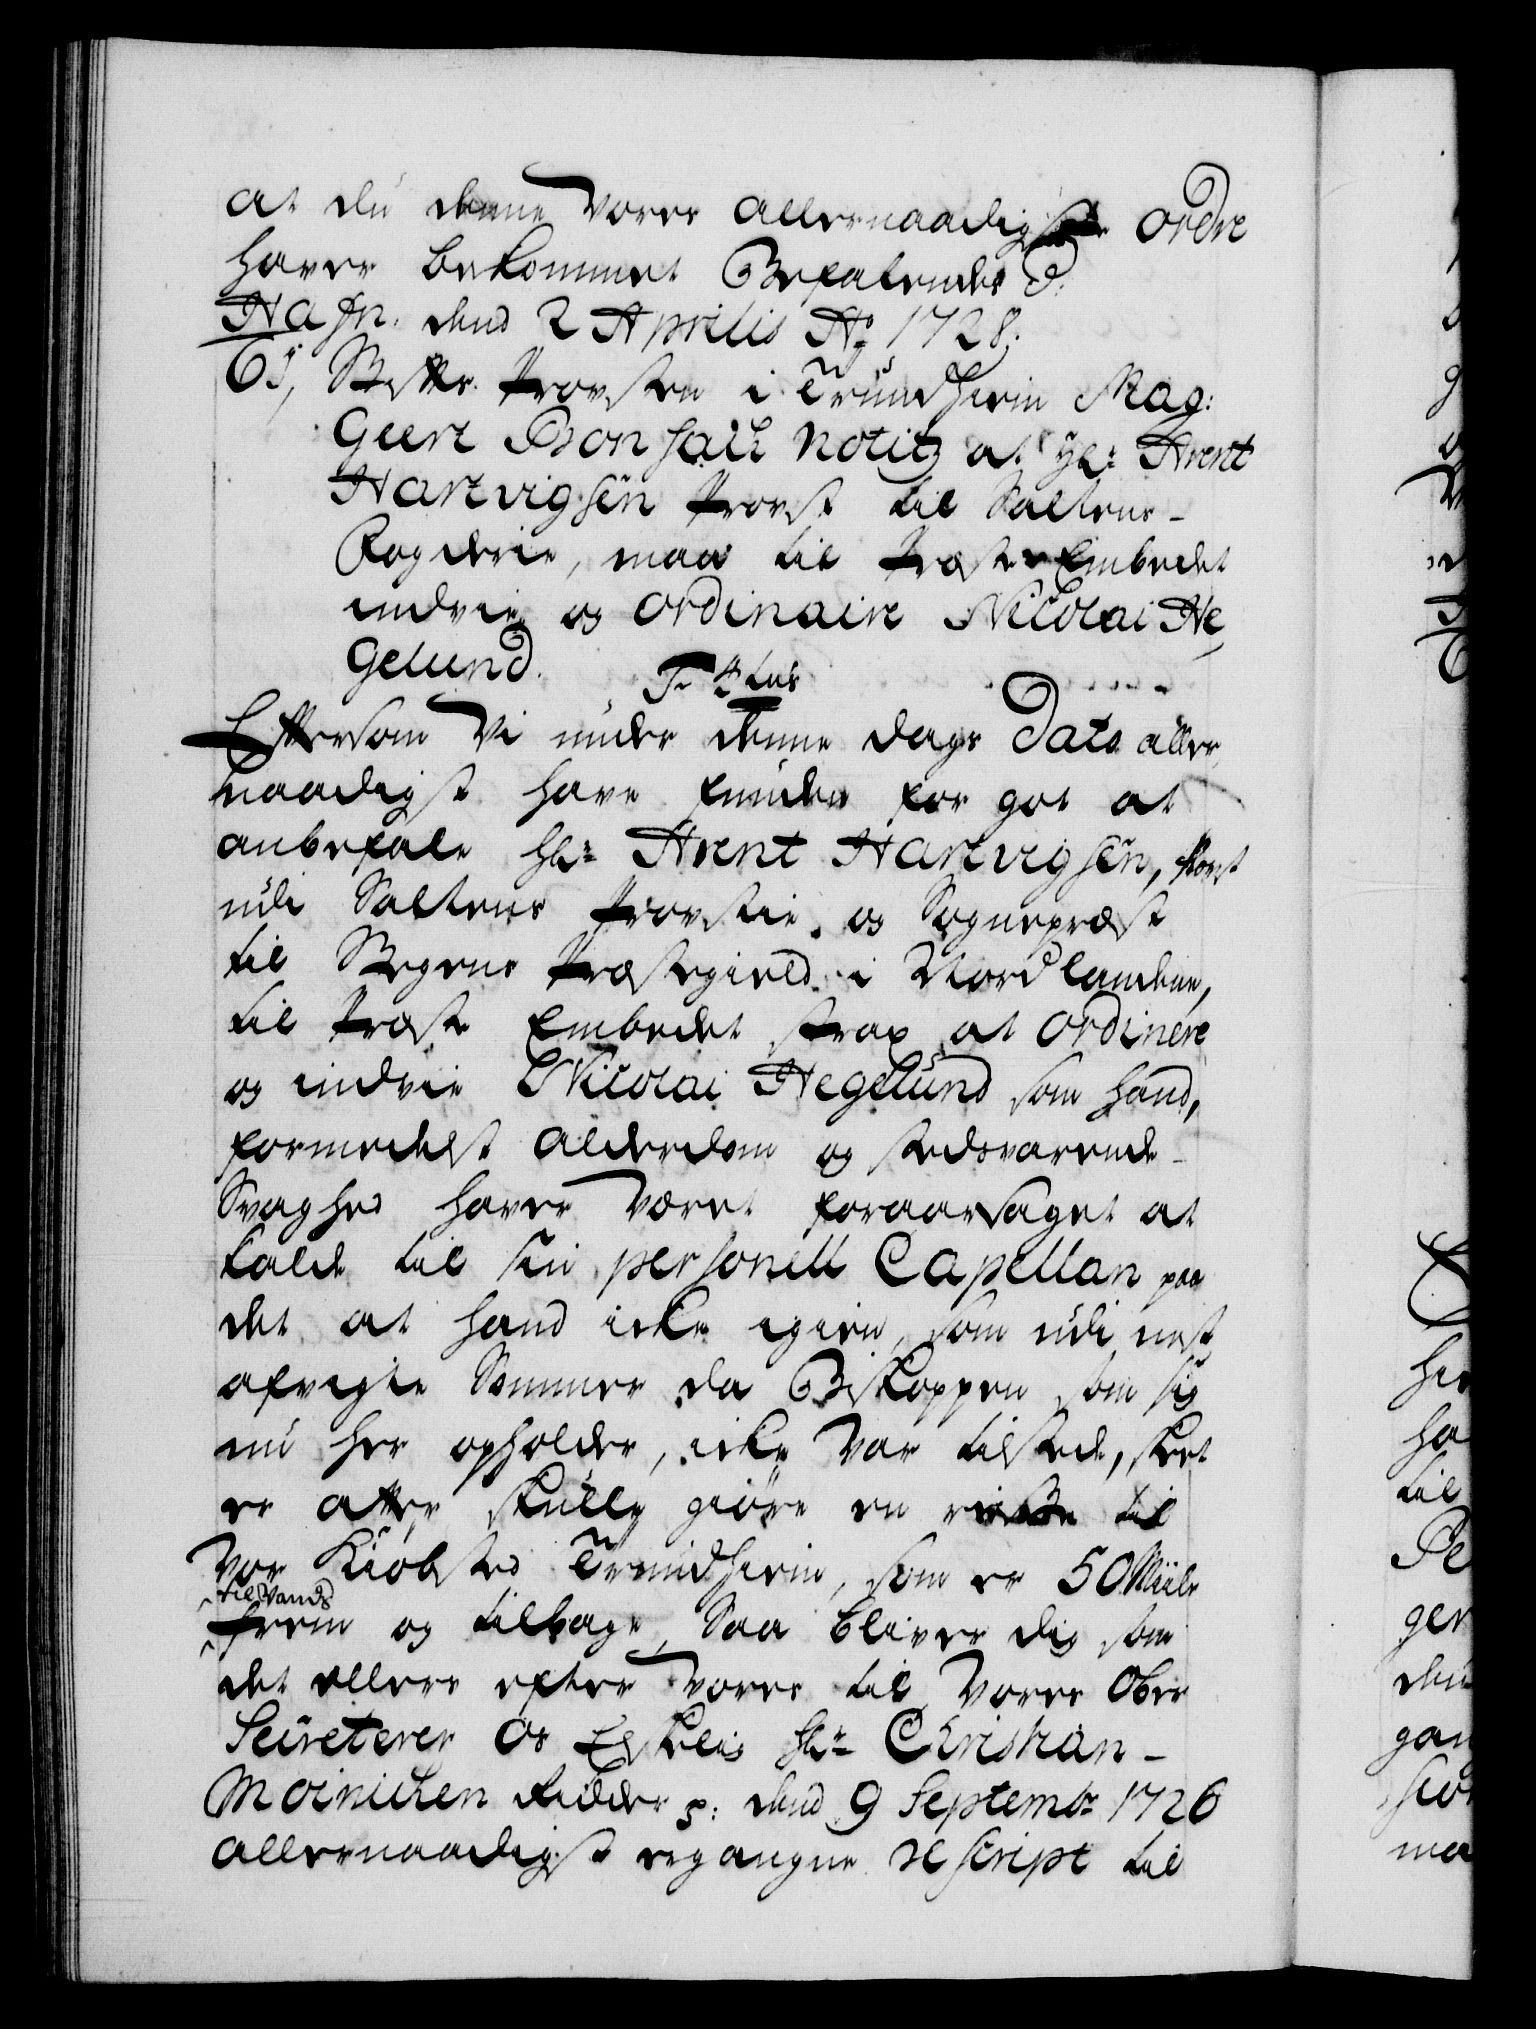 at du denne Vores allernaadigste ordre
haver bekommet Befalendes d.
Hafn. dend 2 Aprilis Aº 1728.
61, Provsten i Trundhiem Mag:
Geert Bonsach Notitz at Hr: Arent
Hartvigsen Provst til Saltens-
Fogderie, maa til Præste Embedet
indvie og ordinaire Nicolai He,
gelund. F: 4tus
Eftersom Vi under denne Dags Dato aller,
naadigst have funden for got at
anbefale Hr: Arent Hartvigsen, Provst
udi Saltens Provstie og Sognepræst
til Stegens Præstegield i Nordlandene,
til Præste Embedet strax at ordinere
og indvie Nicolai Hegelund som hand,
formedelst Alderdom og stedsvarende-
Svaghed haver Været foraarsaget at
kalde til sin personell Capellan paa
det at hand icke igien, som udi nest
afvigte Sommer da Biskoppen som sig
nu her opholder, icke Var tilstede, skeet
er atter skulle giöre en reise til
Vor Kiöbsted Trundhiem, som er 50 Miile
til Vands
frem og tilbage, Saa bliver dig som
det ellers efter Vores til Vores Ober
Secreterer Os Elskelig Hr: Christian-
Moinichen Ridder p: dend 9 Septembr 1726
allernaadigst ergangne rescript til